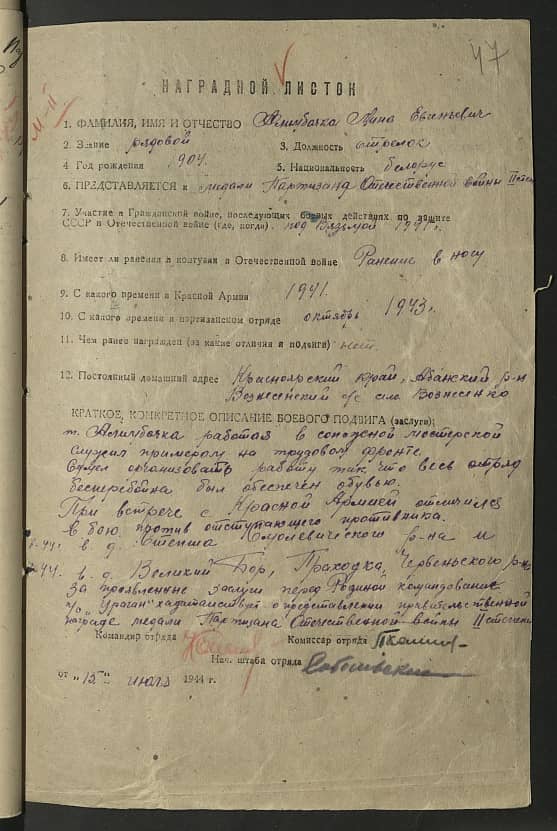 47
НАГРАДНОЙ ЛИСТОК
1. ФАМИЛИЯ, ИМЯ И ОТЧЕСТВО
2. Звание рядовой 3. Должность стрелок
4 Год рождения 1904. 5. Национальность белорус
6. ПРЕДСТАВЛЯЕТСЯ к медали Партизана Отечественной войны II степ
7. Участие в Гражданской войне, последующих боевых действиях по защите
СССР и Отечественной войне (где, когда) под Вязьмой 1941 г.
8. Имеет ли ранения и контузии в Отечественной войне Ранение в ногу
9. С какого времени в Красной Армии 1941.
10. С какого времени в партизанском отряде октябрь 1943 г.
11. Чем ранее награжден (за какие отличия и подвиги) нет
12. Постоянный домашний адрес Красноярский край, Абанский р-н
Вознесенский с/с село Вознесенко
КРАТКОЕ, КОНКРЕТНОЕ ОПИСАНИЕ БОЕВОГО ПОДВИГА (заслуги):
т. работая в сапожной мастерской
служил примером на трудовом фронте.
Сумел организовать работу так что весь отряд
бесперебойно был обеспечен обувью.
При встрече с Красной Армией отличился
в бою против отступающего противника.
в д. Смолевического р-на и
в д. Великий Бор, Проходка, Червеньского р-на
За проявленные заслуги перед Родиной командование
п/о "Ураган" хадатайствует о представлении правительственной
награде медали Партизана Отечественной войны II степени
Командир отряда Комиссар отряда
Нач. штаба отряда
от "15" июля 1944 г.